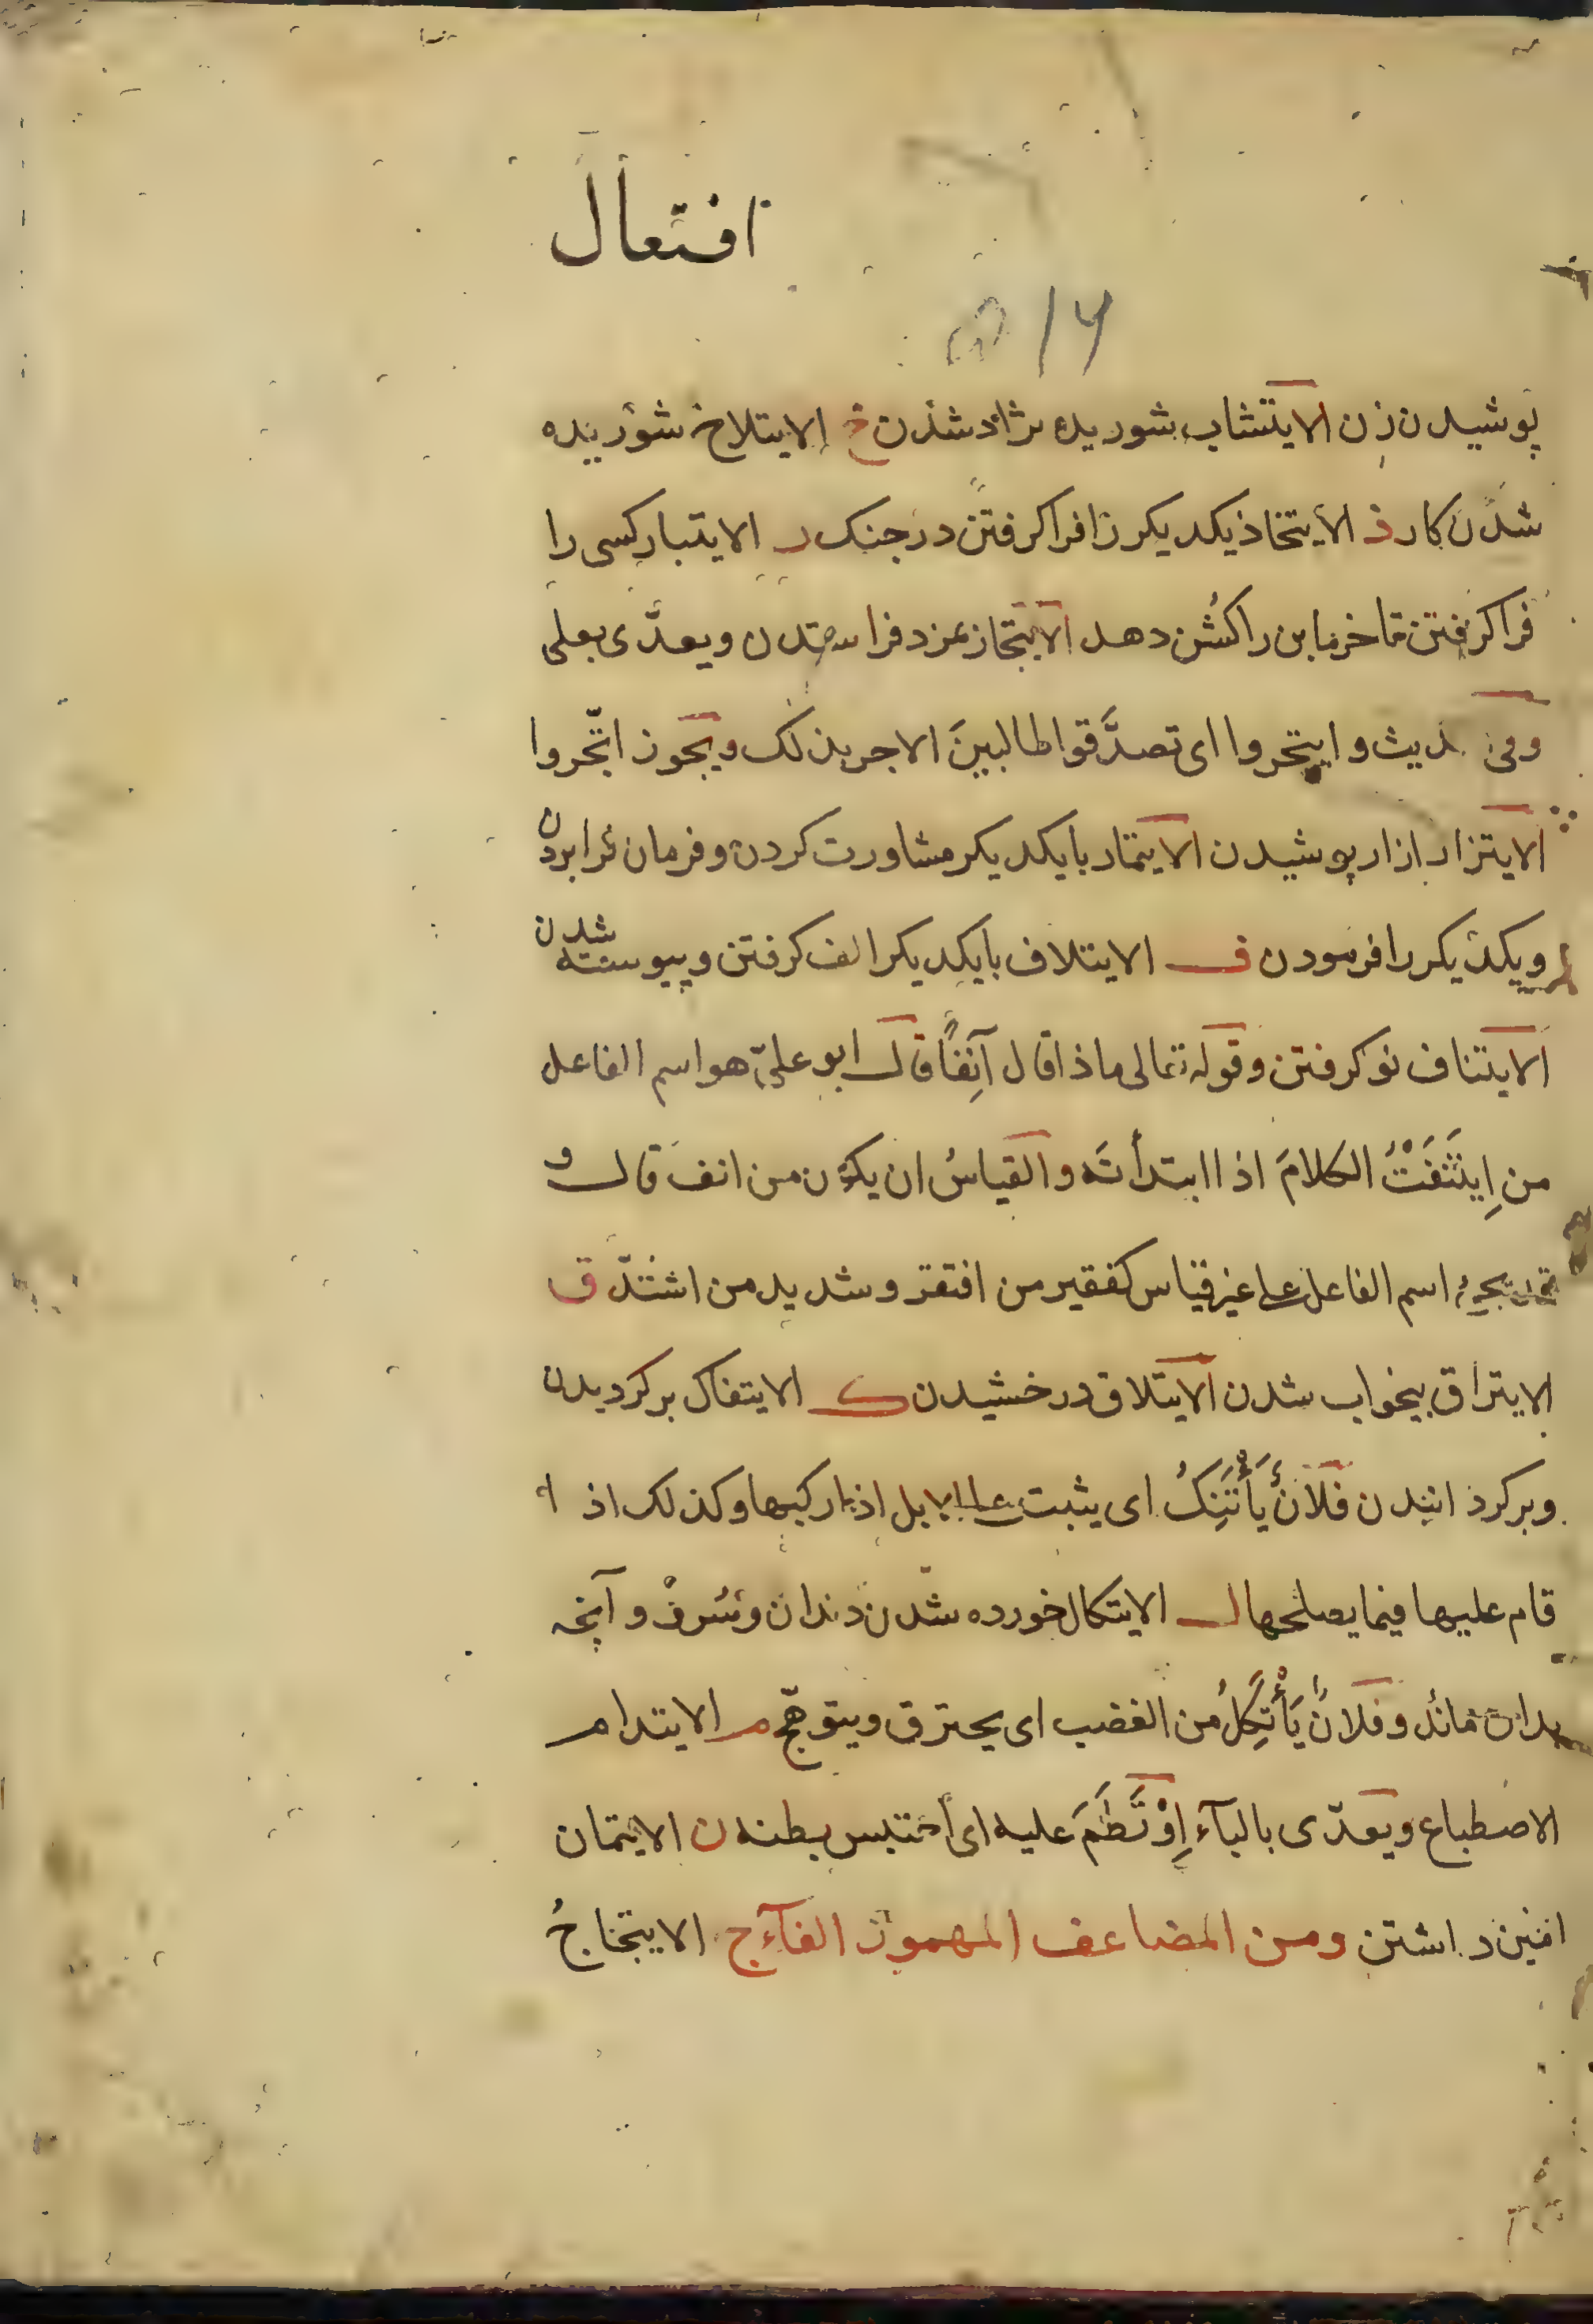 افتعال
پوشیدن زن الایتشاب شوریده نژاد شذن خ الایتلاخ شوریده
شذن کار ذ الایتخاذ یکدیکر را فرا کرفتن در جنک ر الایتبار کسی را
فرا کرفتن تا خرما بن را کشن دهد الایتجار بمزد فرا ستدن ویعدّی بعلی
وفی وایتجروا ای تصدَّقوا طالبینَ الاجر بذلک ویجوز اتّجروا
الایتزار ازار پوشیدن الایتمار با یکدیکر مشاورت کردن وفرمان فرا بردن
ویکدیکر را فرمودن ف الایتلاف با یکدیکر الف کرفتن وپیوسته شدن
الایتناف نو کرفتن وقوله تعالی ماذا قال آنِفًا قال ابو علیّ هو اسم الفاعل
من اِیتَنَفْتُ الکلامَ اذا ابتدأتَه والقیاسُ ان یکون من انف قال و
قد یجیء اسم الفاعل علی غیر قیاس کفقیر من افتقر وشدید من اشتدّ ق
الایتراق بیخواب شدن الایتلاق درخشیدن ک الایتفاک برکردیدن
وبرکردانیدن فلانٌ یَأْتَنِکُ ای یثبت علی الابل اذا رکبها وکذلک اذا
قام علیها فیما یصلحها ل الایتکال خورده شدن دندان وسُرفْ وآنچه
بدان ماند وفلانٌ یَأْتَکِلُ من الغضب ای یحترق ویتوهّج م الایتدام
الاصطباغ ویعدّی بالبآء اِوْتَطَمَ علیه ای احتبس بطنه ن الایتمان
امین داشتن ومن المضاعف المهموز الفآء ج الایتجاجُ